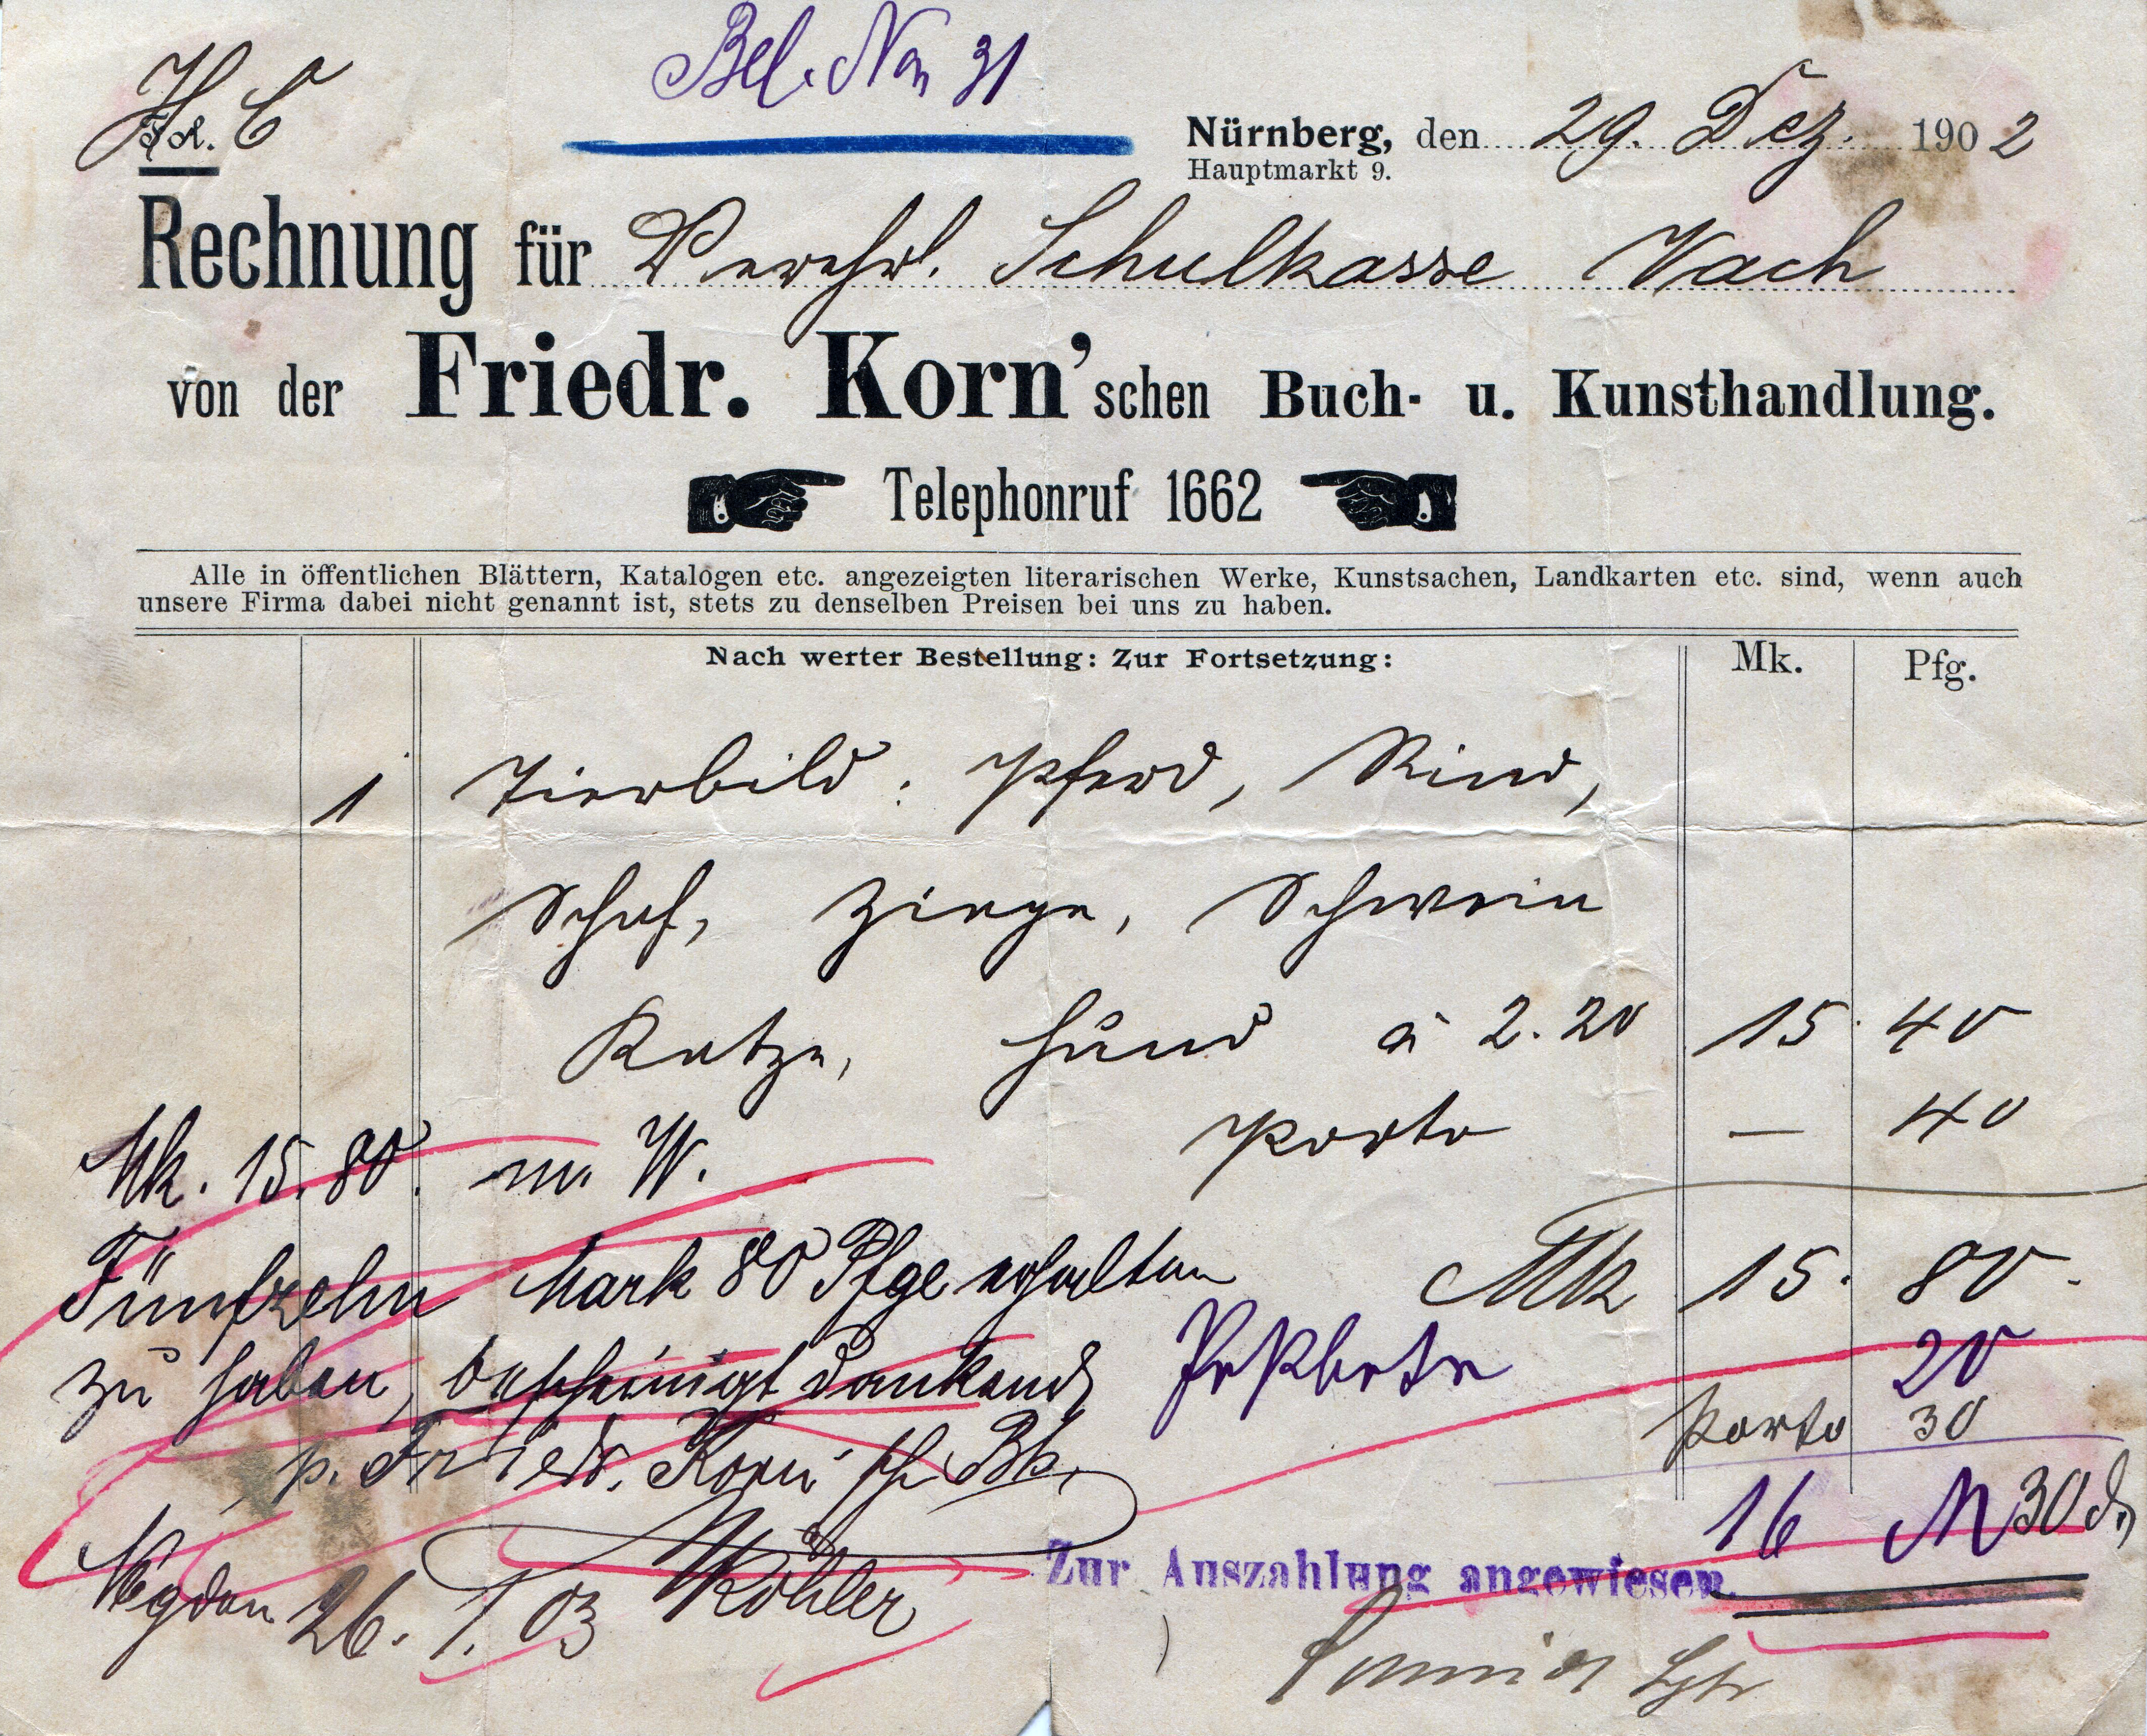 Bel. Nro 31
H C
F. K.
Nürnberg, den 29. Dez. 1902
Hauptmarkt 9.
Rechnung für Verehrl. Schulkasse Vach
von der Friedr. Korn'schen Buch- u. Kunsthandlung.
Telephonruf 1662
Alle in öffentlichen Blättern, Katalogen etc. angezeigten literarischen Werke, Kunstsachen, Landkarten etc. sind, wenn auch
unsere Firma dabei nicht genannt ist, stets zu denselben Preisen bei uns zu haben.
Nach werter Bestellung: Zur Fortsetzung: Mk. Pfg.
1 Tierbild: Pferd, Rind,
Schaf, Ziege, Schwein
Katze, Hund à 2.20 15. 40
Porto — 40
Mk. 15.80. m. W.
Mk 15. 80.
Fünfzehn Mark 80 Pfge erhalten
zu haben, bescheinigt dankend
20
Porto 30
p. Friedr. Korn'sche Bh.
16 M 30 d.
Köhler
Nbg den 26. 1. 03
Zur Auszahlung angewiesen.